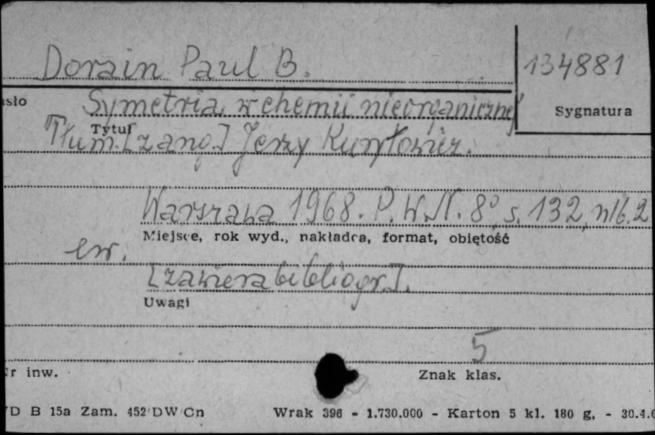 Dorain Paul B.
134881
asło
Symetria w chemii nieorganicznej
Sygnatura
Tytuł
Tłum. [z ang.] Jerzy Kuryłowicz.
Warszawa 1968. P.W.N. 8° s. 132, nlb. 2
Miejsce, rok wyd., nakładca, format, objętość
ew.
[zawiera bibliogr.].
Uwagi
5
Nr inw.
Znak klas.
D B 15a Zam. 452/DW/Cn
Wrak 396 - 1.730.000 - Karton 5 kl. 180 g. - 30.4.6